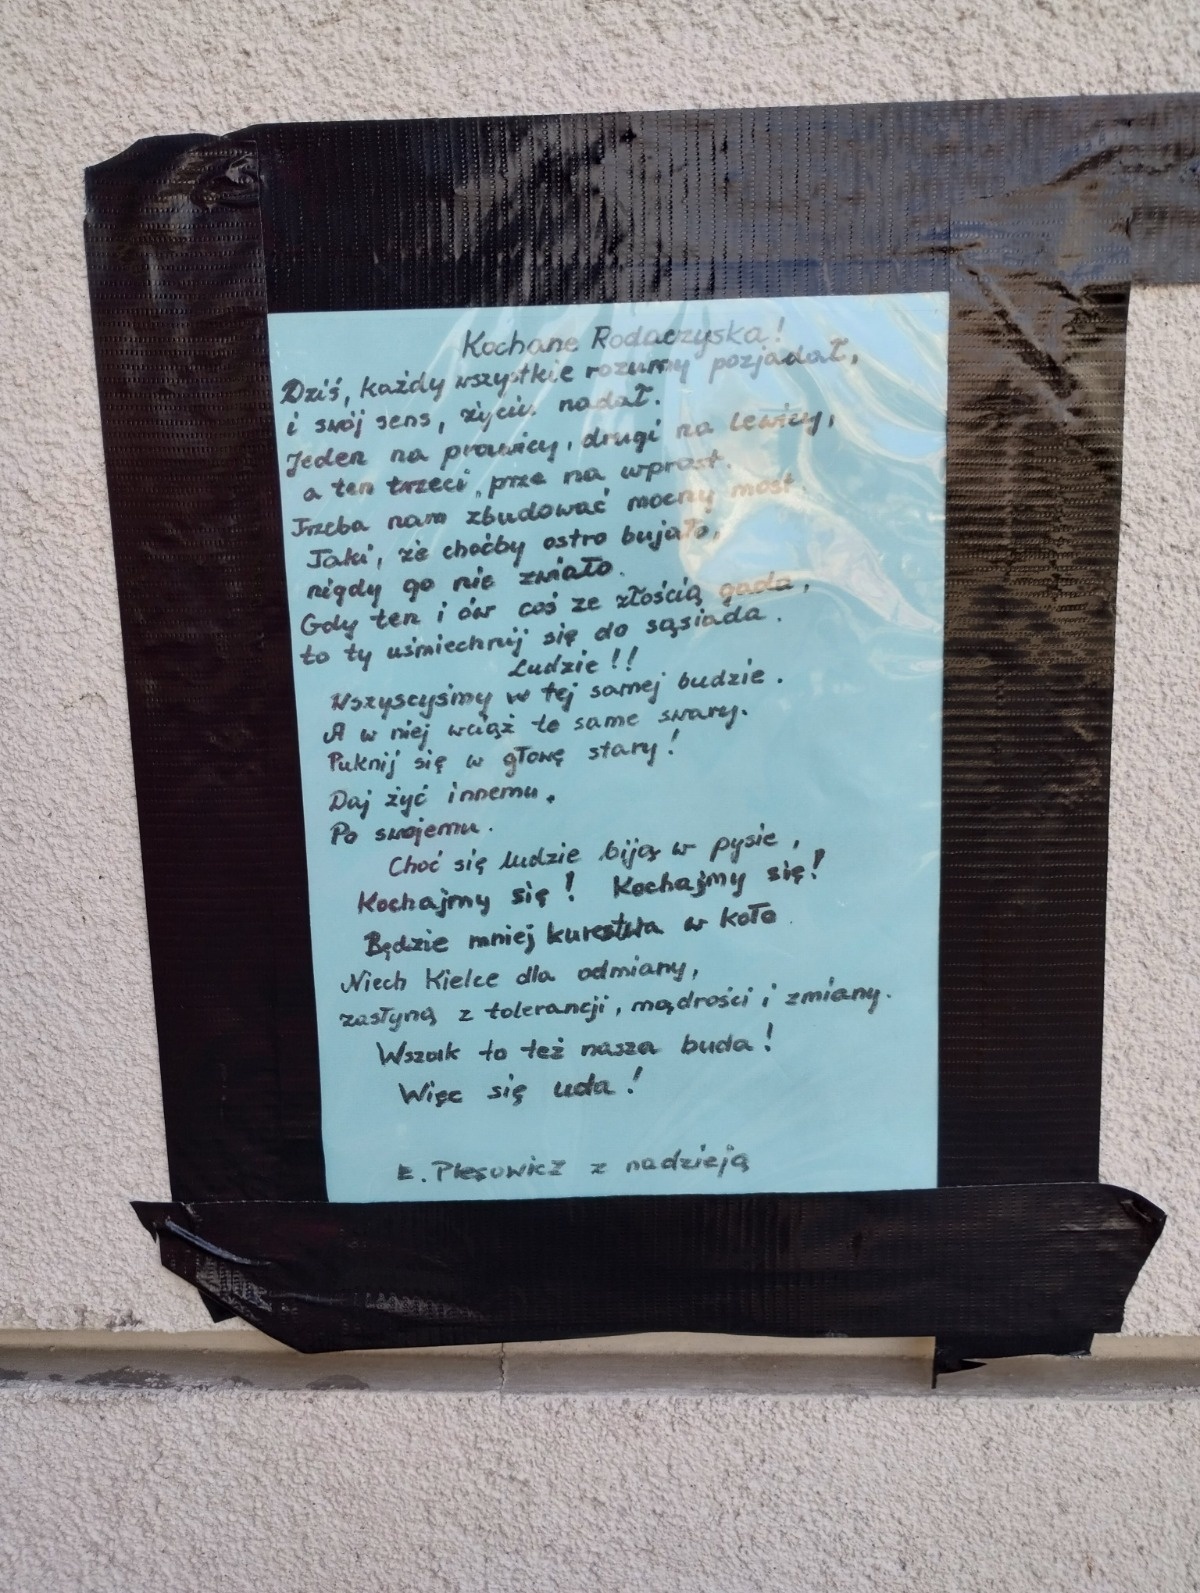 Kochane Rodaczyska!
Dziś, każdy wszystkie rozumy pozjadał,
i swój sens, życiu nadał.
Jeden na prawicy, drugi na lewicy,
a ten trzeci, prze na wprost.
Trzeba nam zbudować mocny most.
Taki, że choćby ostro bujało,
nigdy go nie zwiało.
Gdy ten i ów coś ze złością gada,
to ty uśmiechnij się do sąsiada.
Ludzie!!
Wszyscyśmy w tej samej budzie.
A w niej wciąż te same swary.
Puknij się w głowę stary!
Daj żyć innemu.
Po swojemu.
Choć się ludzie biją w pysie,
Kochajmy się! Kochajmy się!
Będzie mniej kurestwa w koło.
Niech Kielce dla odmiany,
zasłyną z tolerancji, mądrości i zmiany.
Wszak to też nasza buda!
Więc się uda!
E. Plęsowicz z nadzieją